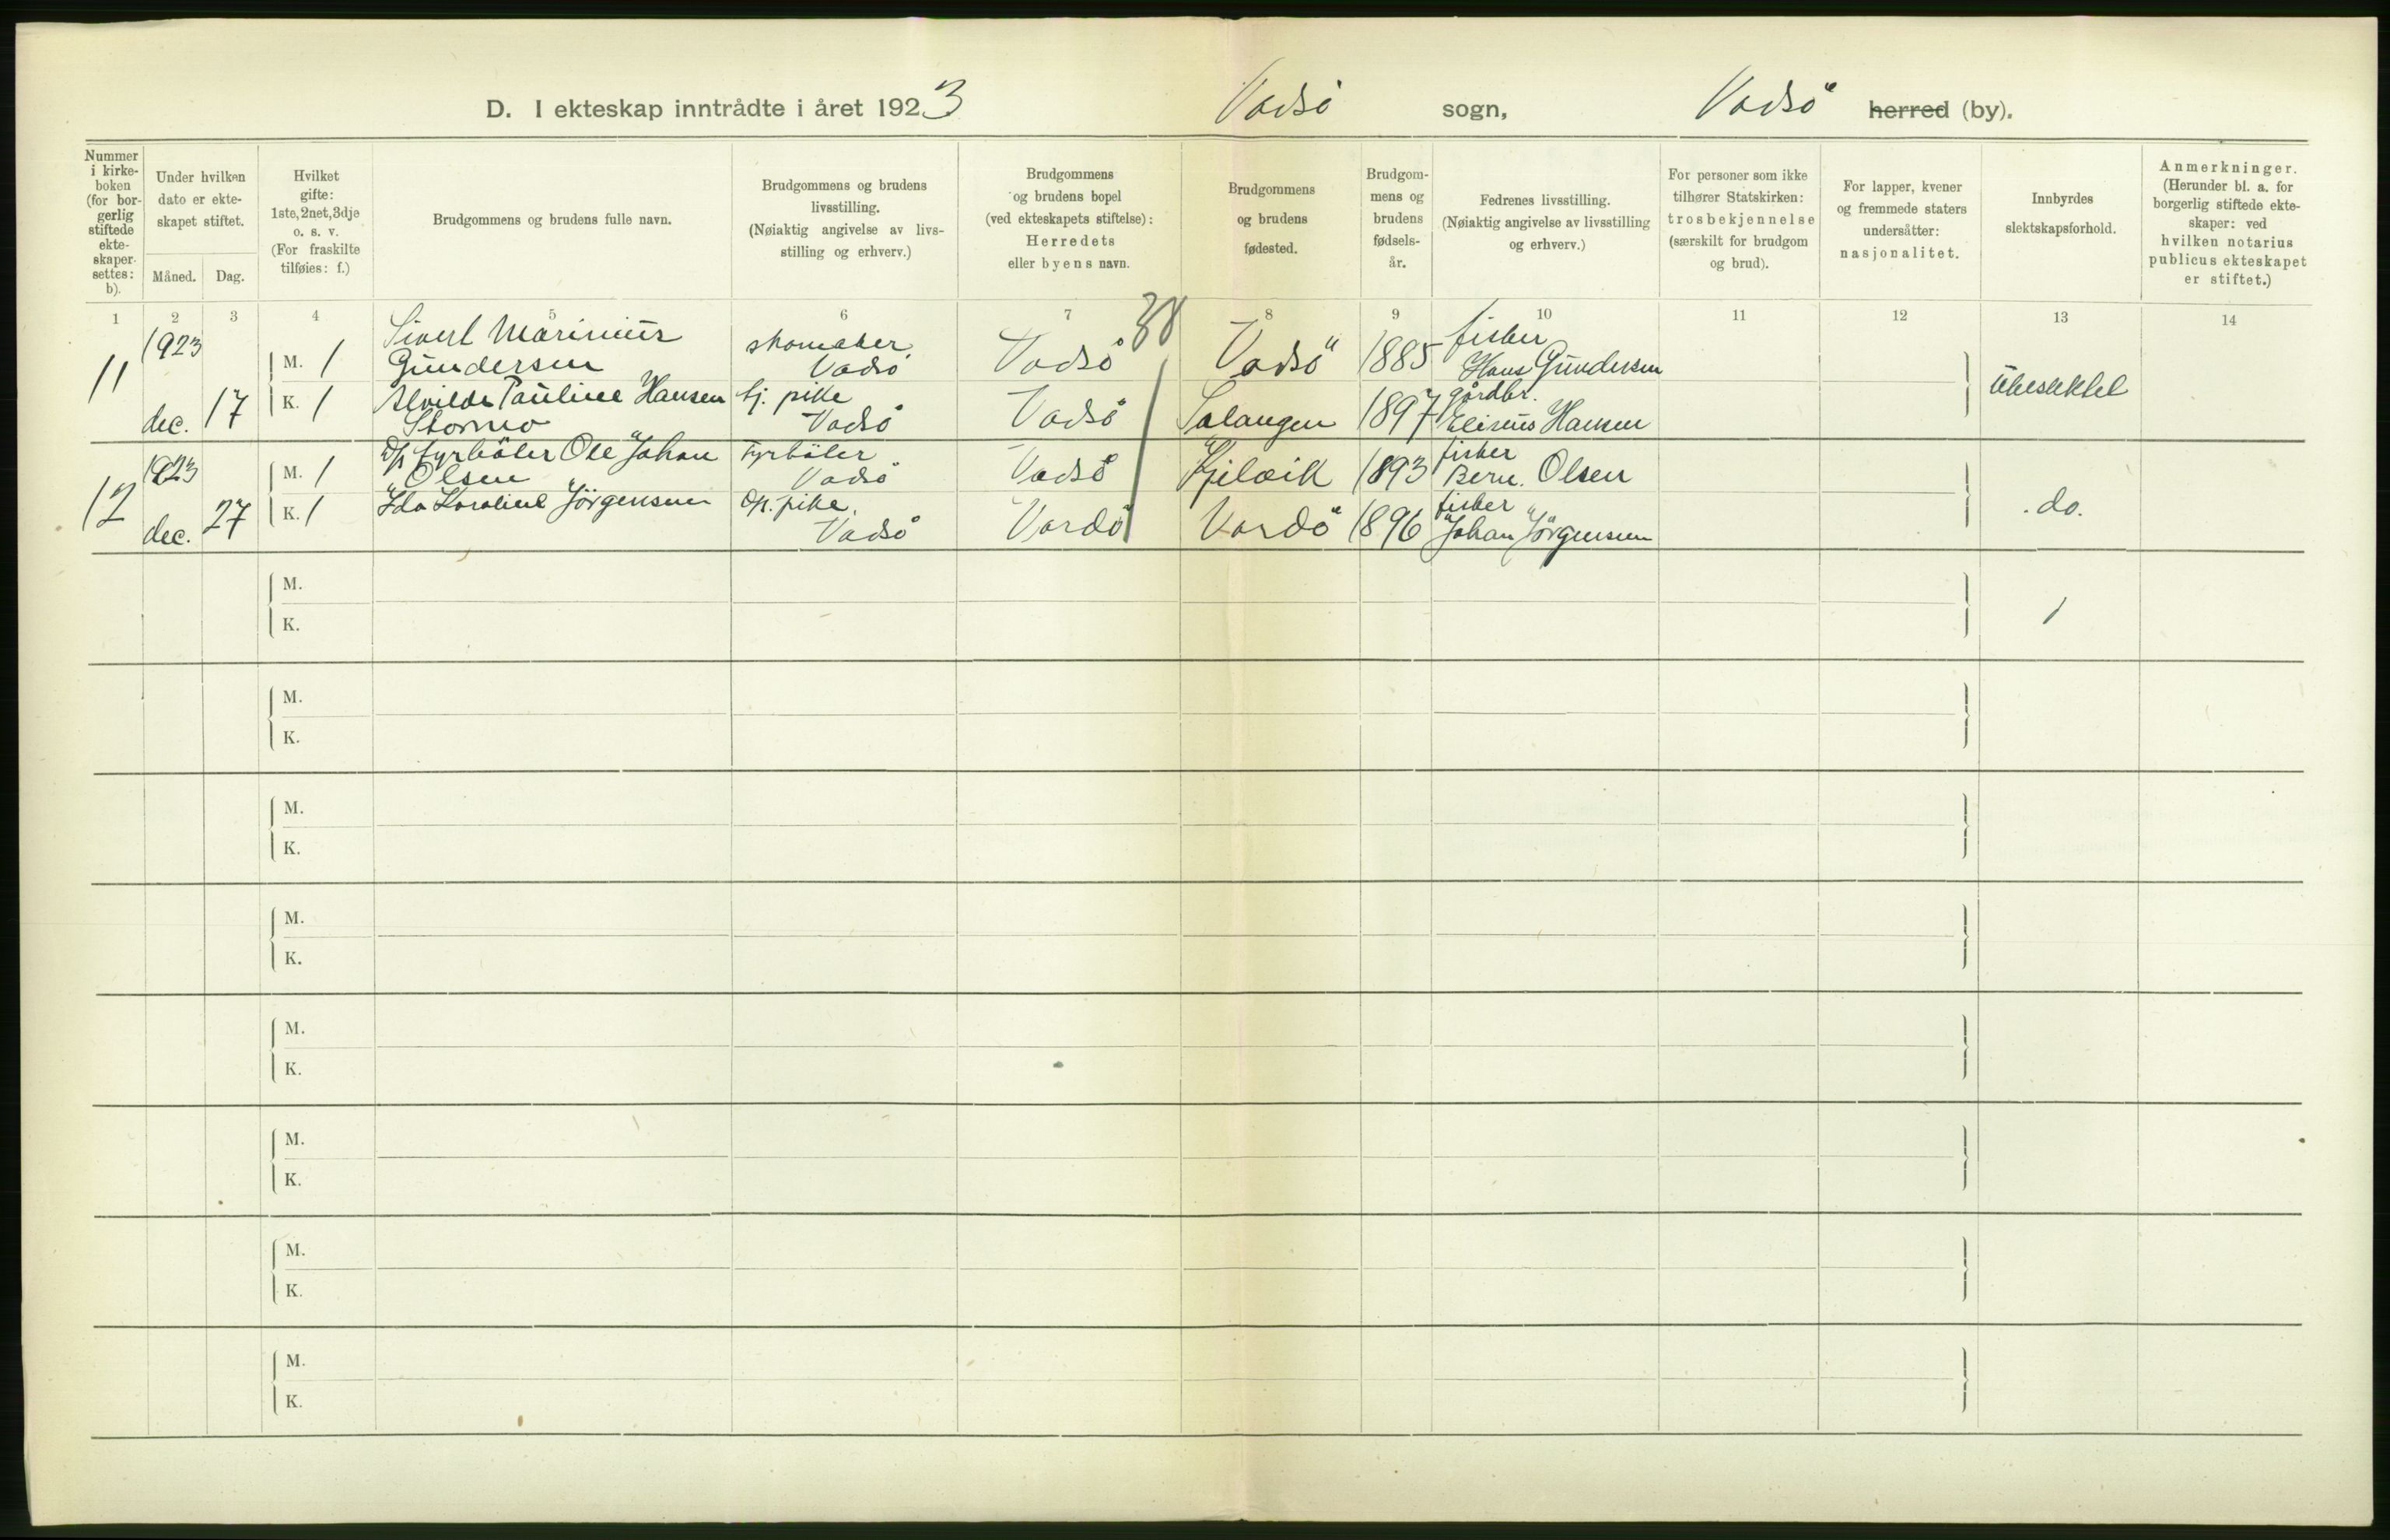 D. I ekteskap inntrådte i året 1923 Vadsö sogn, Vadsö herred (by).
Nummer i kirkeboken (for borgerlig stiftede ekteskaper settes: b).
Under hvilken dato er ekteskapet stiftet.
Måned. Dag.
Hvilket gifte: 1ste, 2net, 3dje o. s. v. (For fraskilte tilføies: f.)
Brudgommens og brudens fulle navn.
Brudgommens og brudens livsstilling. (Nøiaktig angivelse av livsstilling og erhverv.)
Brudgommens og brudens bopel (ved ekteskapets stiftelse): Herredets eller byens navn.
Brudgommens og brudens fødested.
Brudgommens og brudens fødselsår.
Fedrenes livsstilling. (Nøiaktig angivelse av livsstilling og erhverv.)
For personer som ikke tilhører Statskirken: trosbekjennelse (særskilt for brudgom og brud).
For lapper, kvener og fremmede staters undersåtter: nasjonalitet.
Innbyrdes slektskapsforhold.
Anmerkninger. (Herunder bl. a. for borgerlig stiftede ekteskaper: ved hvilken notarius publicus ekteskapet er stiftet.)
1 2 3 4 5 6 7 8 9 10 11 12 13 14
38
11 1923 dec. 17
M. 1 Sivert Marinius Gundersen skomaker Vadsö Vadsö Vadsö 1885 fisker Hans Gundersen
K. 1 Alvilde Pauline Hansen Stormo tj. pike Vadsö Vadsö Salangen 1897 gårdbr. Eliseus Hansen
Ubeslektet
12 1923 dec. 27
M. 1 D/s fyrböter Ole Johan Olsen Fyrböter Vadsö Vadsö Kjelvik 1893 fisker Bern. Olsen
K. 1 Ida Karoline Jörgensen pike. Vadsö Vardö Vardö 1896 fisker Johan Jörgensen
do.
M.
K.
M.
K.
M.
K.
M.
K.
M.
K.
M.
K.
M.
K.
M.
K.